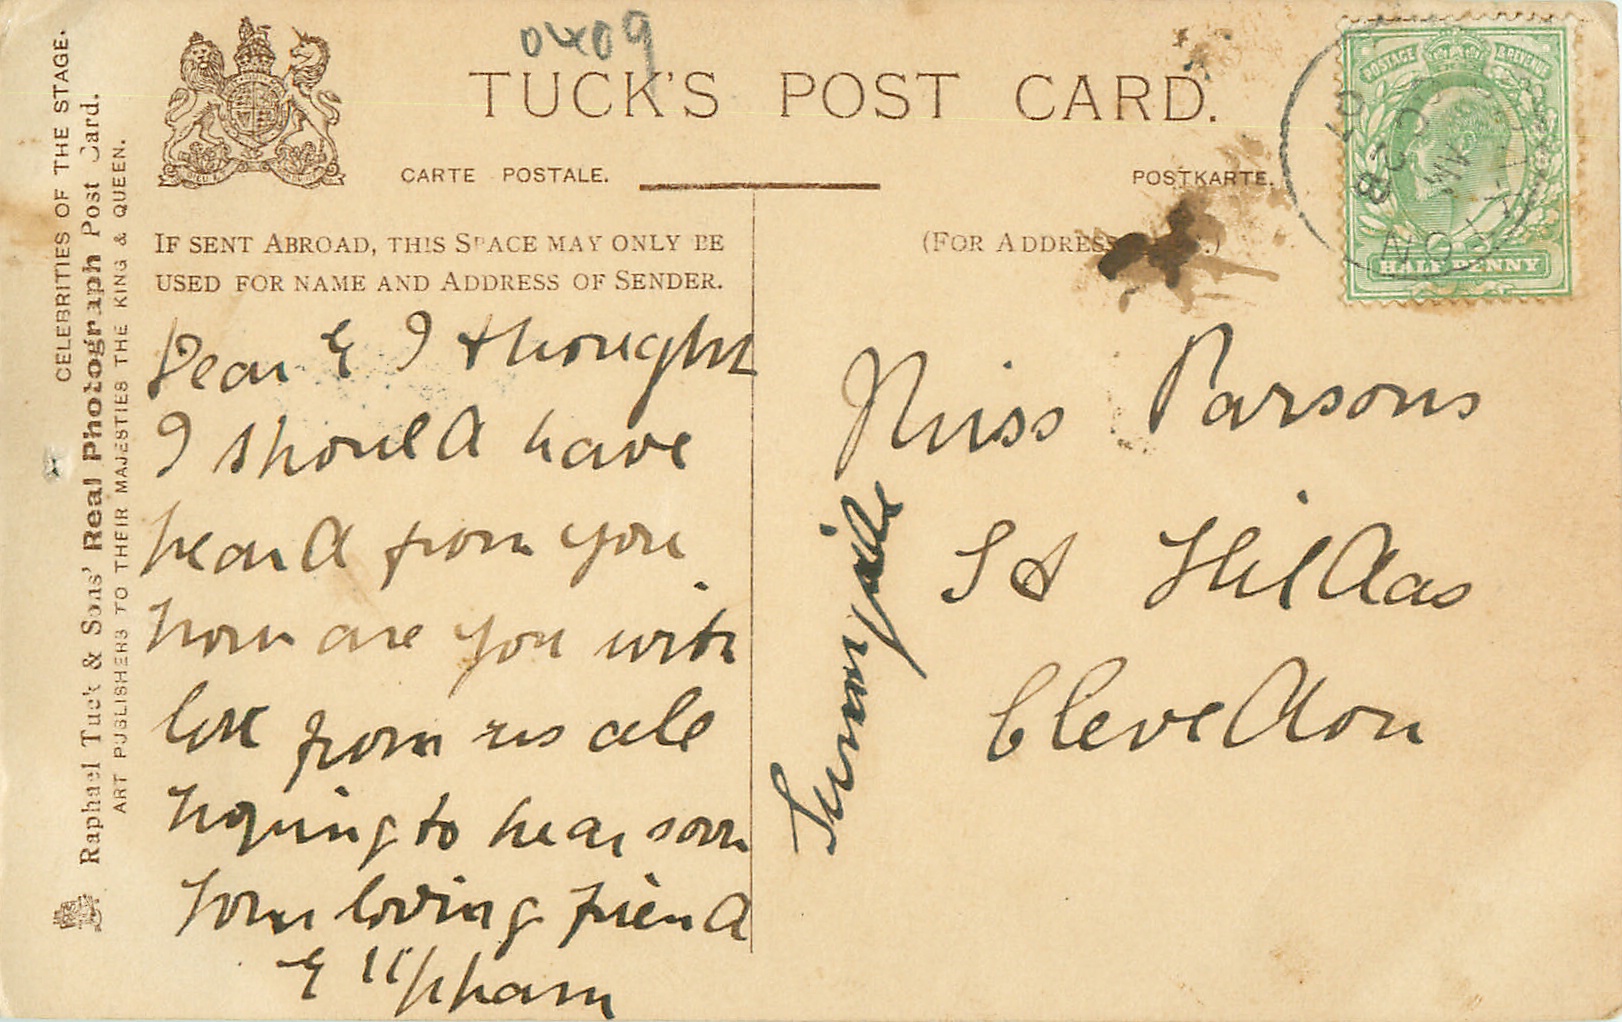 0409
TUCK'S POST CARD.
CARTE POSTALE.
POSTKARTE.
IF SENT ABROAD, THIS SPACE MAY ONLY BE
USED FOR NAME AND ADDRESS OF SENDER.
(FOR ADDRESS
POSTAGE & REVENUE
HALFPENNY
OC 28
07
Dear E I thought
I should have
heard from you
how are you with
love from us all
hoping to hear soon
Your loving friend
E Upham
Miss Parsons
St Hildas
Clevedon
Sunnyside
CELEBRITIES OF THE STAGE.
Raphael Tuck & Sons' Real Photograph Post Card.
ART PUBLISHERS TO THEIR MAJESTIES THE KING & QUEEN.